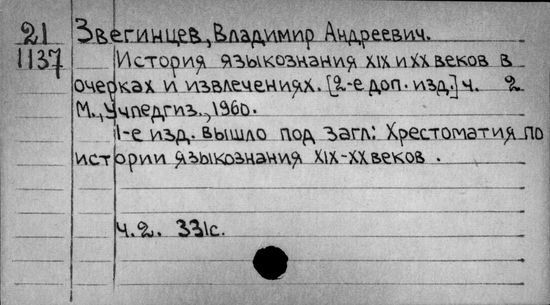 21 Звегинцев, Владимир Андреевич.
1137 История языкознания XIX и XX веков в
очерках и извлечениях. [2-е доп. изд.] ч. 2
М., Учпедгиз., 1960.
1-е изд. вышло под загл: Хрестоматия по
истории языкознания XIX-XX веков.
ч.2. 331с.